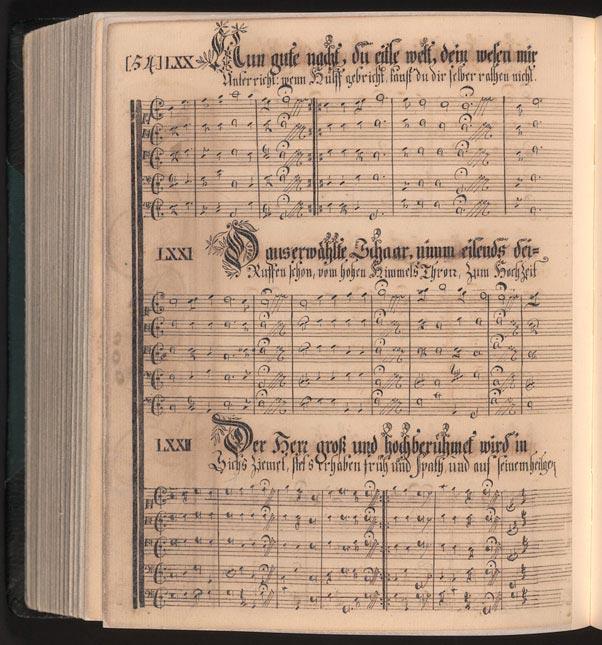 [54] LXX Nun gute nacht, du eitle welt, dein wesen mir
Unterricht, wenn Hülff gebricht, kanst du dir selber rathen nicht.
LXXI O auserwählte Schaar, nimm eilends dei=
Ruffen schon, vom hohen Himmels Thron, zum Hochzeit
LXXII Der Herr groß und hochberühmet wird in
Sichs ziemet, stets erhaben früh und spath, und auf seinem heilgen